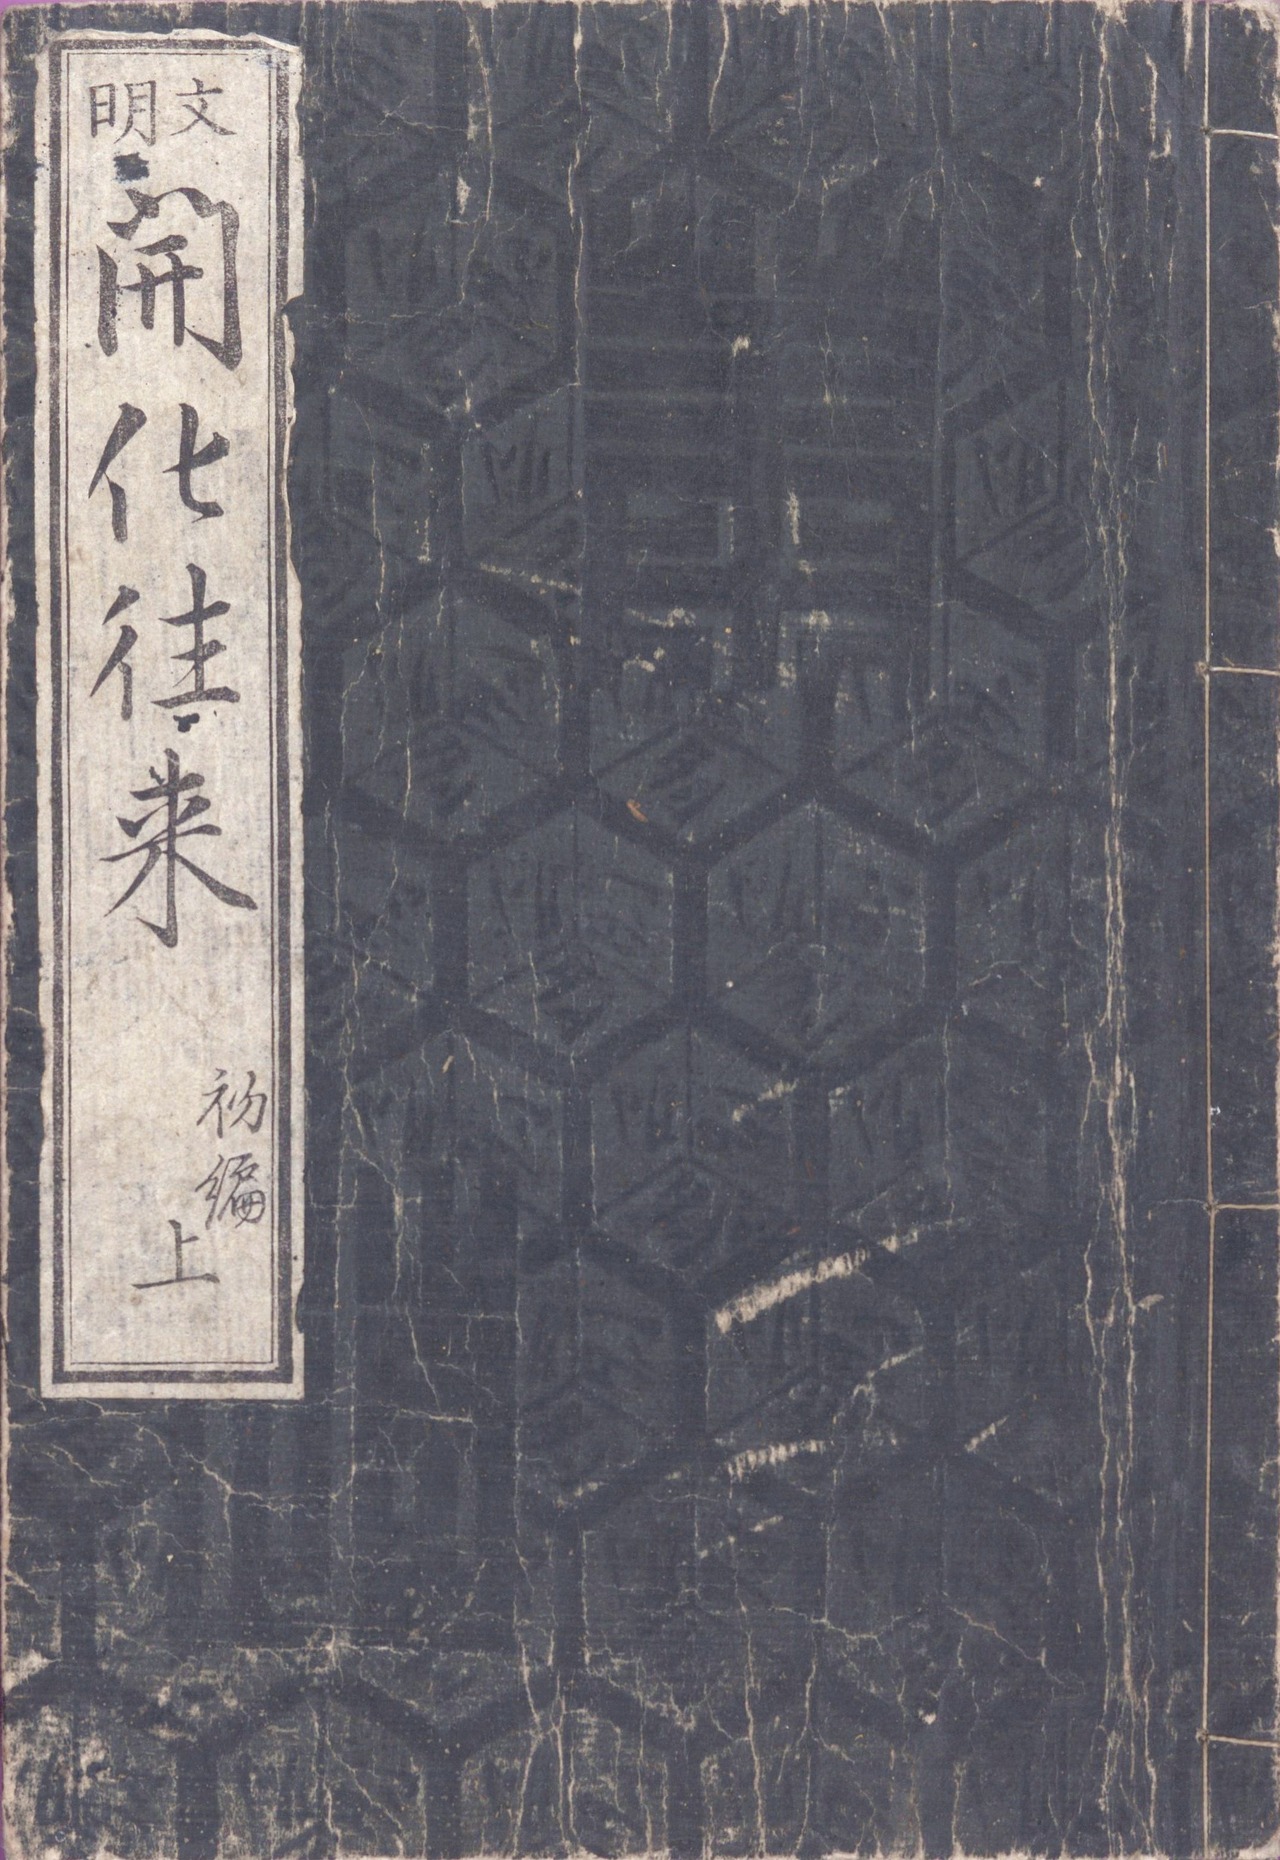 文明
開化往来
初編
上